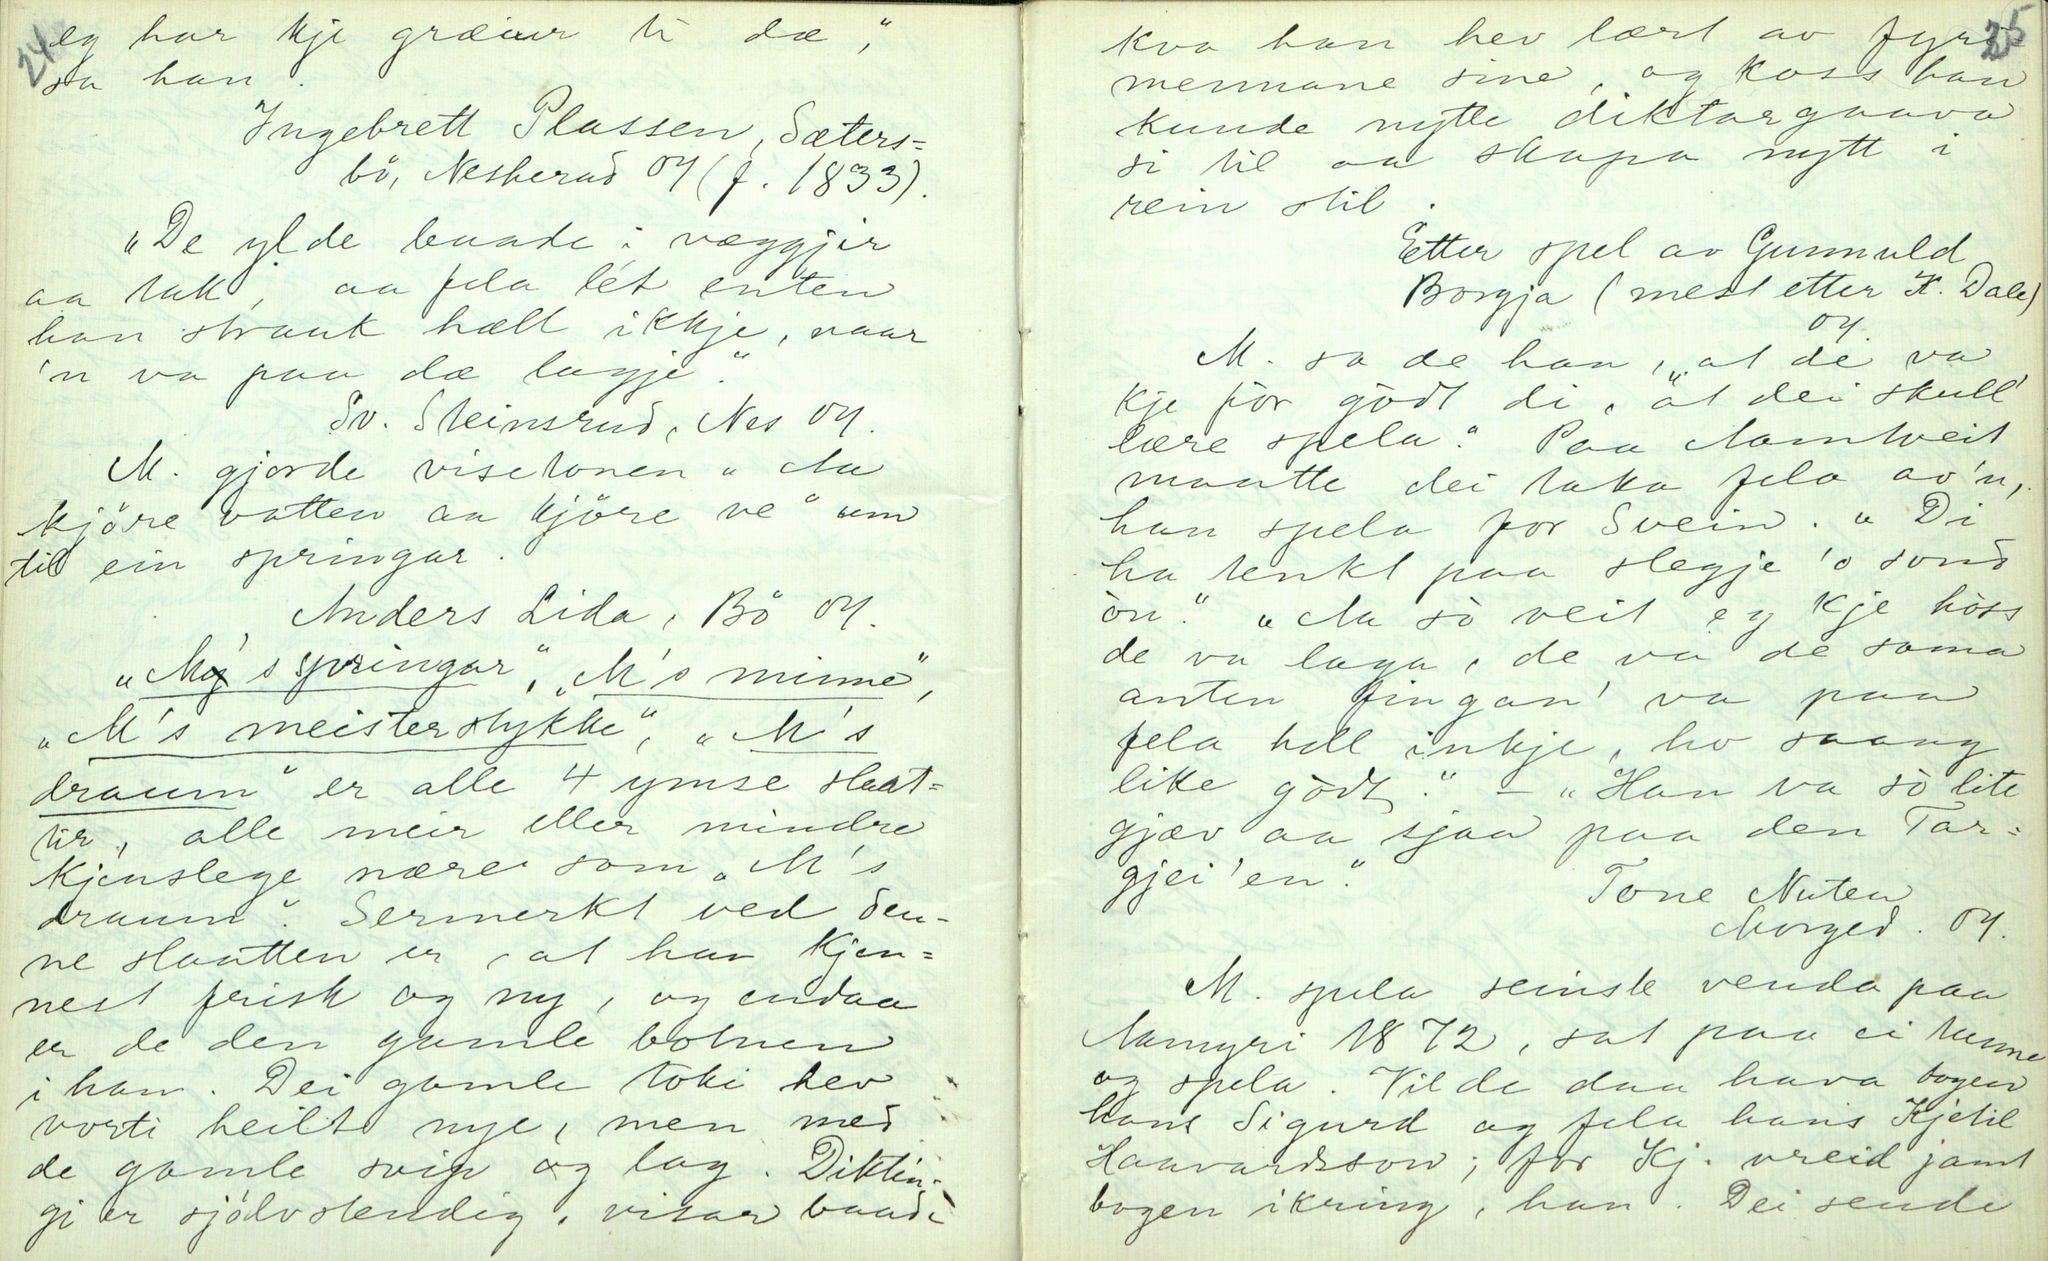 24
eg har kje græiur ti dæ,"
sa han.
Ingebrett Plassen, Sæters=
bö, Nesherad 04 (f. 1833).
"De ylde baade i væggjir
aa tak, aa fela lét enten
han strauk hæll ikkje, naar
'n va paa dæ lagje."
Sv. Steinsrud, Nes 04.
M. gjorde visetonen "Aa
kjöre vatten aa kjöre ve" um
til ein springar.
Anders Lida, Bö 04.
"M's springar", "M's minne",
"M's meisterstykke", "M's
draum" er alle 4 ymse slaat=
tir, alle meir eller mindre
kjenslege nære som "M's
draum". Sermerkt ved den-
ne slaatten er, at han kjen=
nest frisk og ny, og endaa
er de den gamle botnen
i han. Dei gamle toki hev
vorti heilt nye, men med
de gamle svip og lag. Diktin-
gi er sjölvstendig, visar baade
25
kva han hev lært av fyre
mennane sine, og koss han
kunde nytte diktargaava
si til aa skapa nytt i
rein stil.
Etter spel av Gunnuld
Borgja (mest etter K. Dale)
04.
M. sa de han, "at dé va
kje för gödt di, at dei skull'
lære spela." Paa Aamtveit
maatte dei taka fela av'n,
han spela for Svein. "Di
ha tenkt paa slegje 'o sond
òn." "Aa sò veit eg kje hòss
de va laga, de va de sama
anten fingan' va paa
fela hell inkje, ho saang
like gòdt." – "Han va sò lite
gjæv aa sjaa paa den Tar=
gjei'en."
Tone Nuten
Morged. 04.
M. spela seinste venda paa
Aamyri 1872, sat paa ei tunne
og spela. Vilde daa hava bogen
hans Sigurd og fela hans Kjetil
Haavardsson; for Kj. vreid jamt
bogen ikring, han. Dei sende